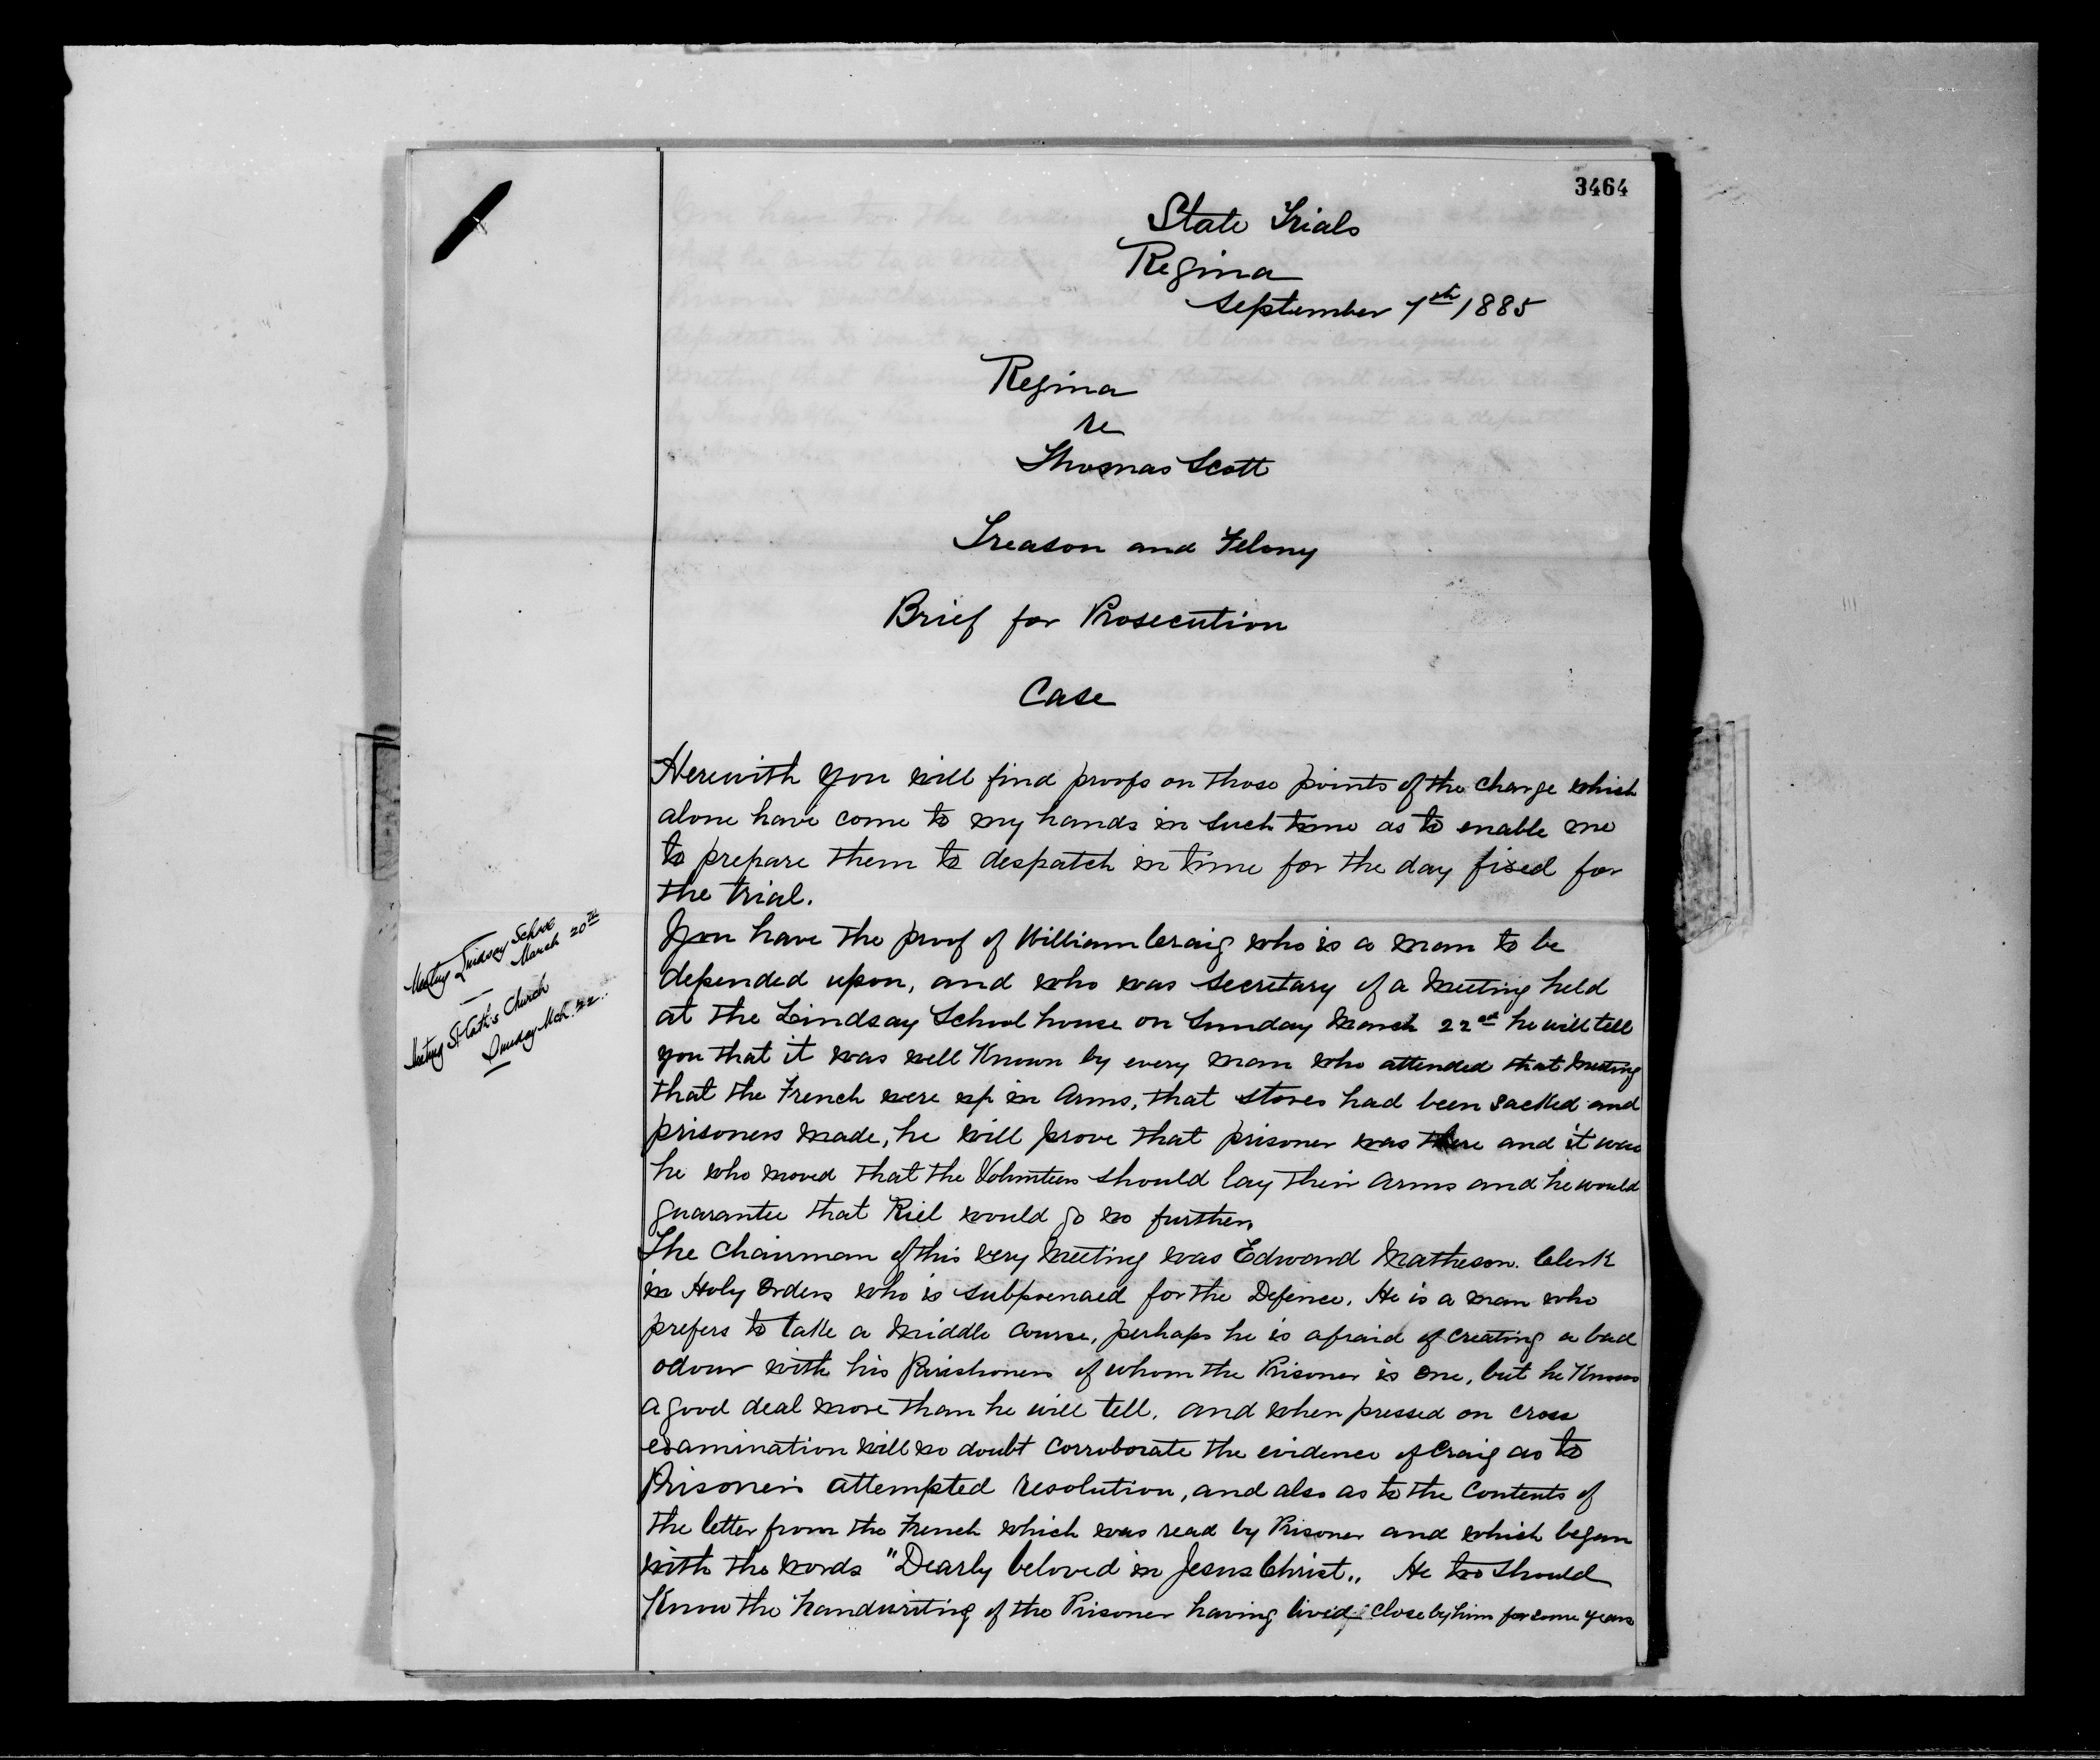 3464
State Trials
Regina
September 7th 1885
Regina
re
Thomas Scott
Treason and Felony
Brief for Prosecution
Case
Herewith you will find proofs on those points of the charge which
alone have come to my hands in such time as to enable me
to prepare them to despatch in time for the day fixed for
the trial.
You have the proof of William Craig who is a man to be
depended upon, and who was secretary of a meeting held
at the Lindsay School house on Sunday March 22nd he will tell
you that it was well known by every man who attended that meeting
that the French were up in Arms, that stores had been sacked and
prisoners made, he will prove that prisoner was there and it was
he who moved that the Volunteers should lay their arms and he would
guarantee that Riel would go no further.
The Chairman of this very meeting was Edward Matheson. Clerk
in Holy Orders who is subpoenaed for the Defence. He is a man who
prefers to take a middle course, perhaps he is afraid of creating a bad
odour with his Parishoners of whom the Prisoner is one, but he knows
a good deal more than he will tell, and when pressed on cross
examination will no doubt corroborate the evidence of Craig as to
Prisoner's attempted resolution, and also as to the contents of
the letter from the French which was read by Prisoner and which began
with the words "Dearly beloved in Jesus Christ„ He too should
know the handwriting of the Prisoner having lived close by him for some years
Meeting Lindsay School
March 20th
Meeting St Cath's Church
Sunday Mch. 22